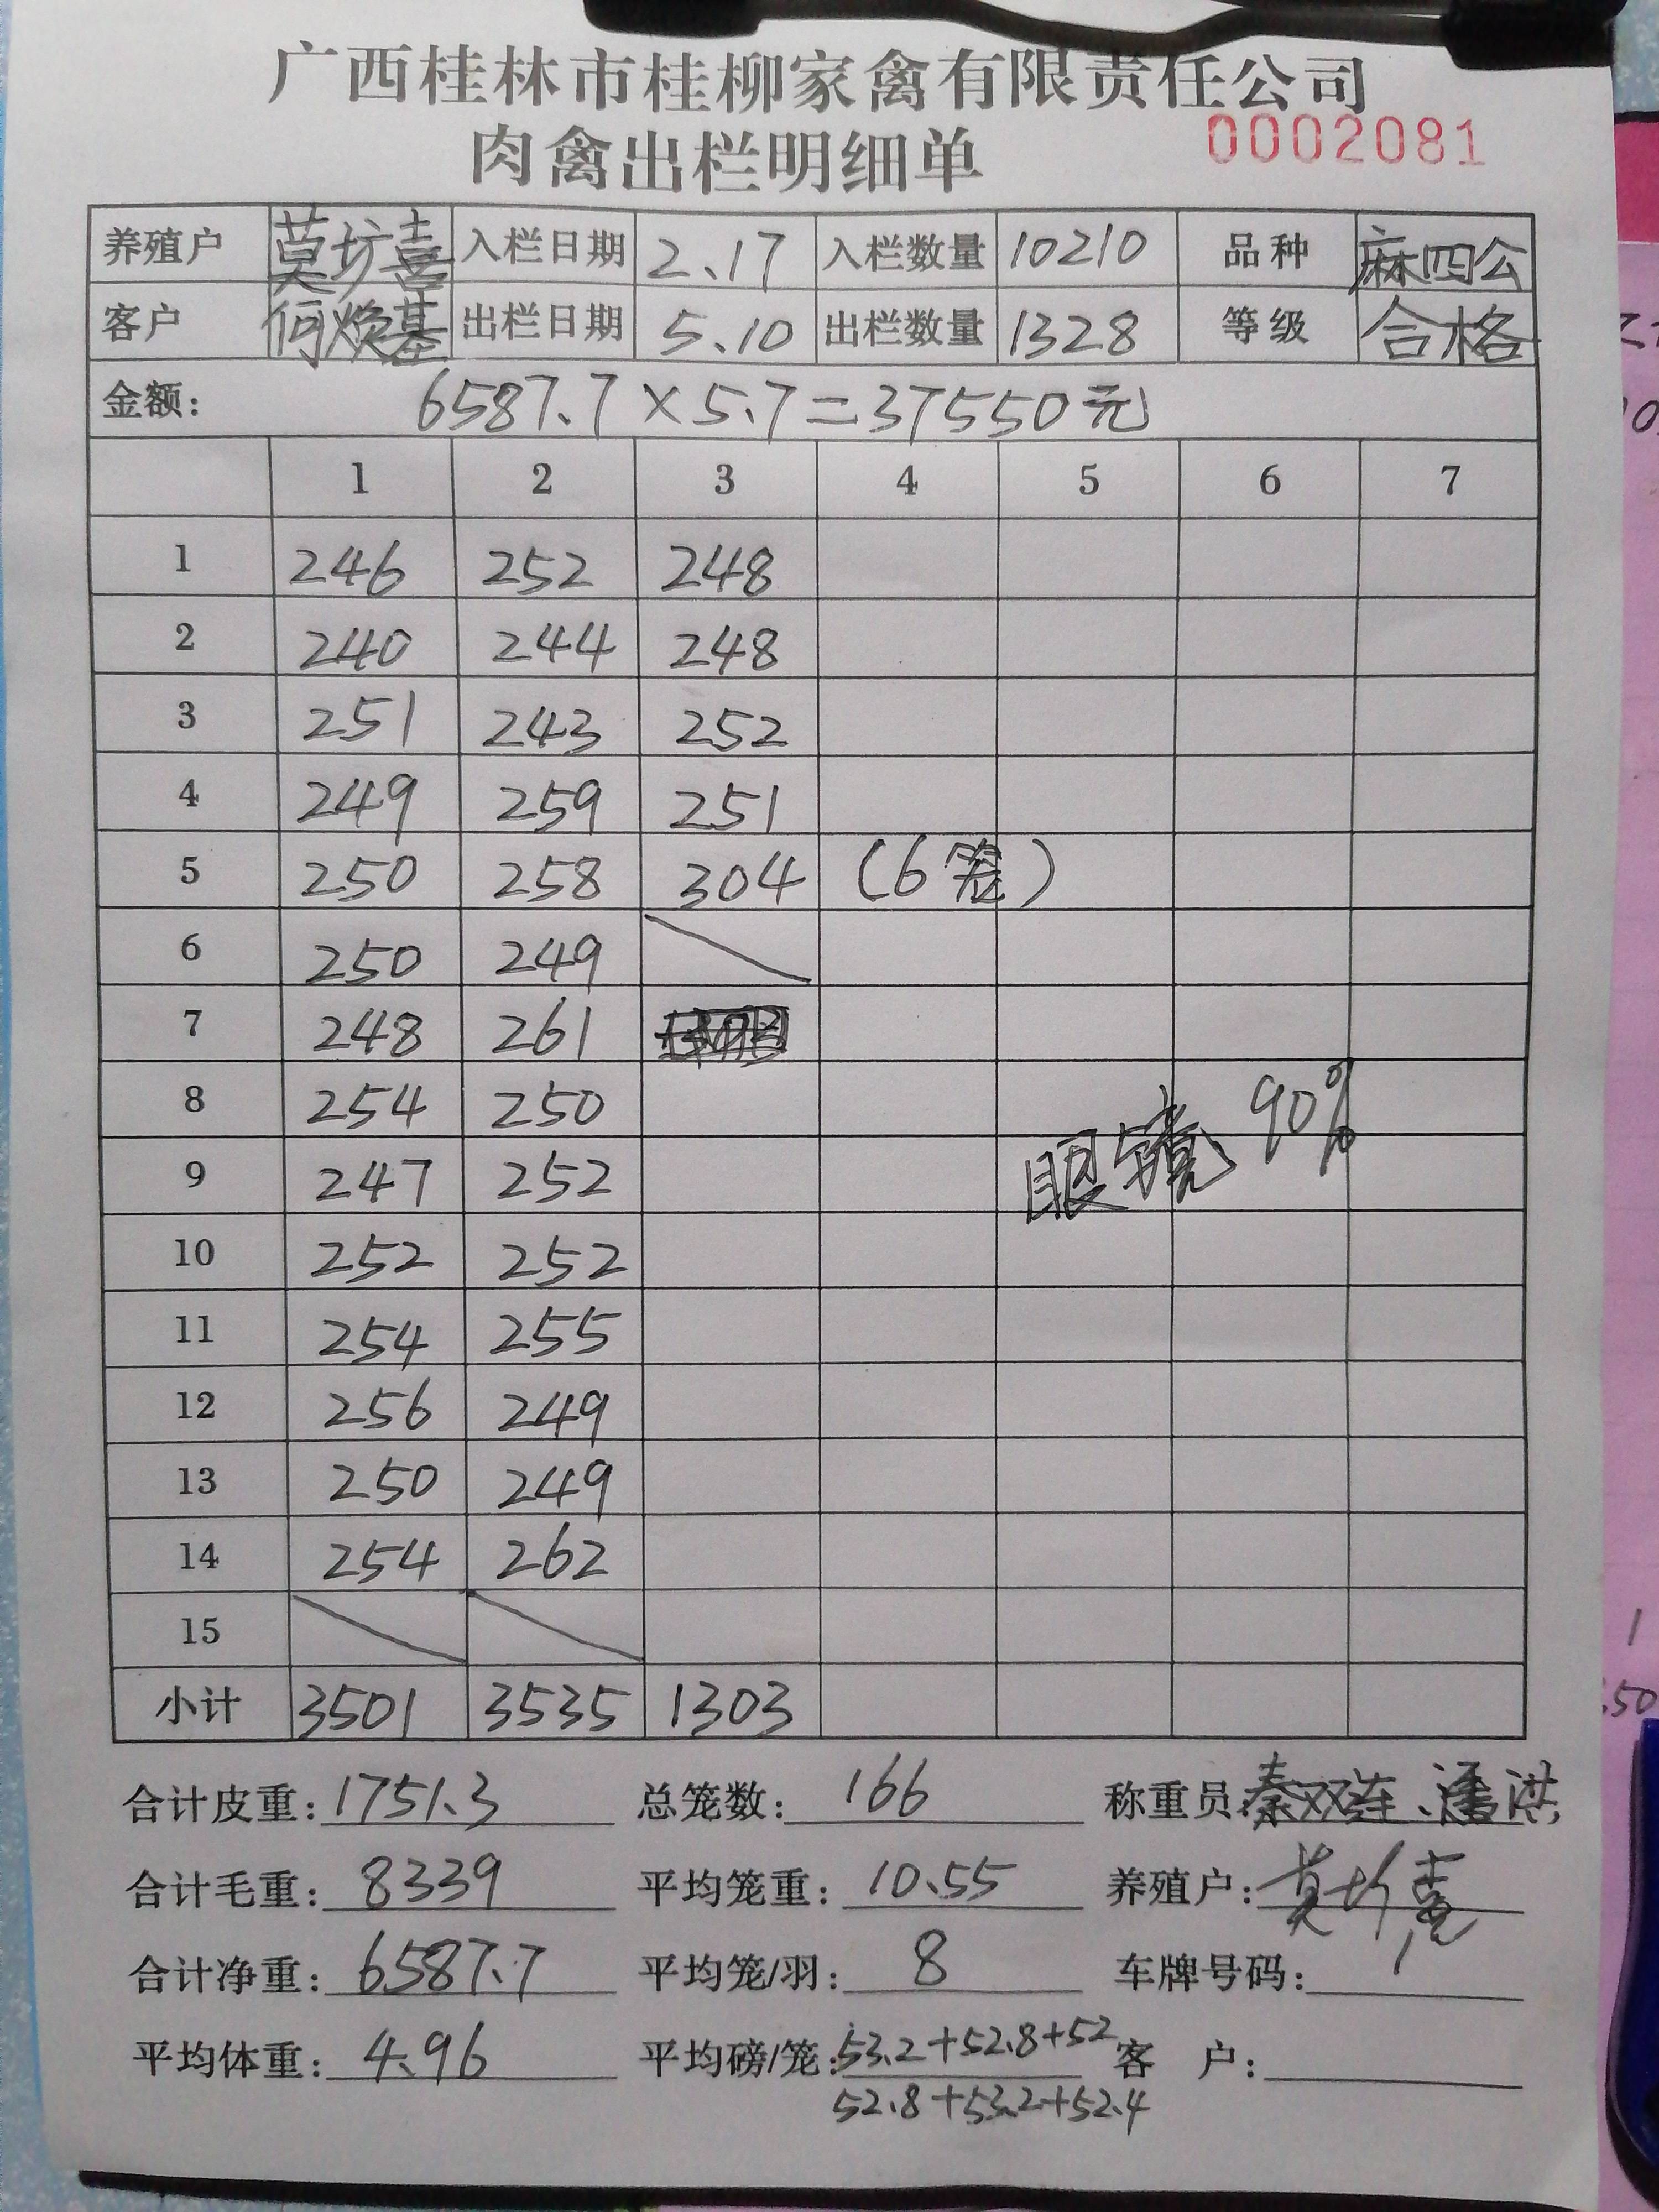 广西桂林市桂柳家禽有限责任公司
肉禽出栏明细单 0002081
养殖户 莫坊喜 入栏日期 2.17 入栏数量 10210 品种 麻四公
客户 何焕基 出栏日期 5.10 出栏数量 1328 等级 合格
金额: 6587.7×5.7=37550元
1 2 3 4 5 6 7
1 246 252 248
2 240 244 248
3 251 243 252
4 249 259 251
5 250 258 304 (6笼)
6 250 249
7 248 261
8 254 250
眼镜 90%
9 247 252
10 252 252
11 254 255
12 256 249
13 250 249
14 254 262
15
小计 3501 3535 1303
合计皮重: 1751.3 总笼数: 166 称重员: 秦双连、潘洪
合计毛重: 8339 平均笼重: 10.55 养殖户: 莫坊喜
合计净重: 6587.7 平均笼/羽: 8 车牌号码:
平均体重: 4.96 平均磅/笼: 53.2+52.8+52 客 户:
52.8+53.2+52.4